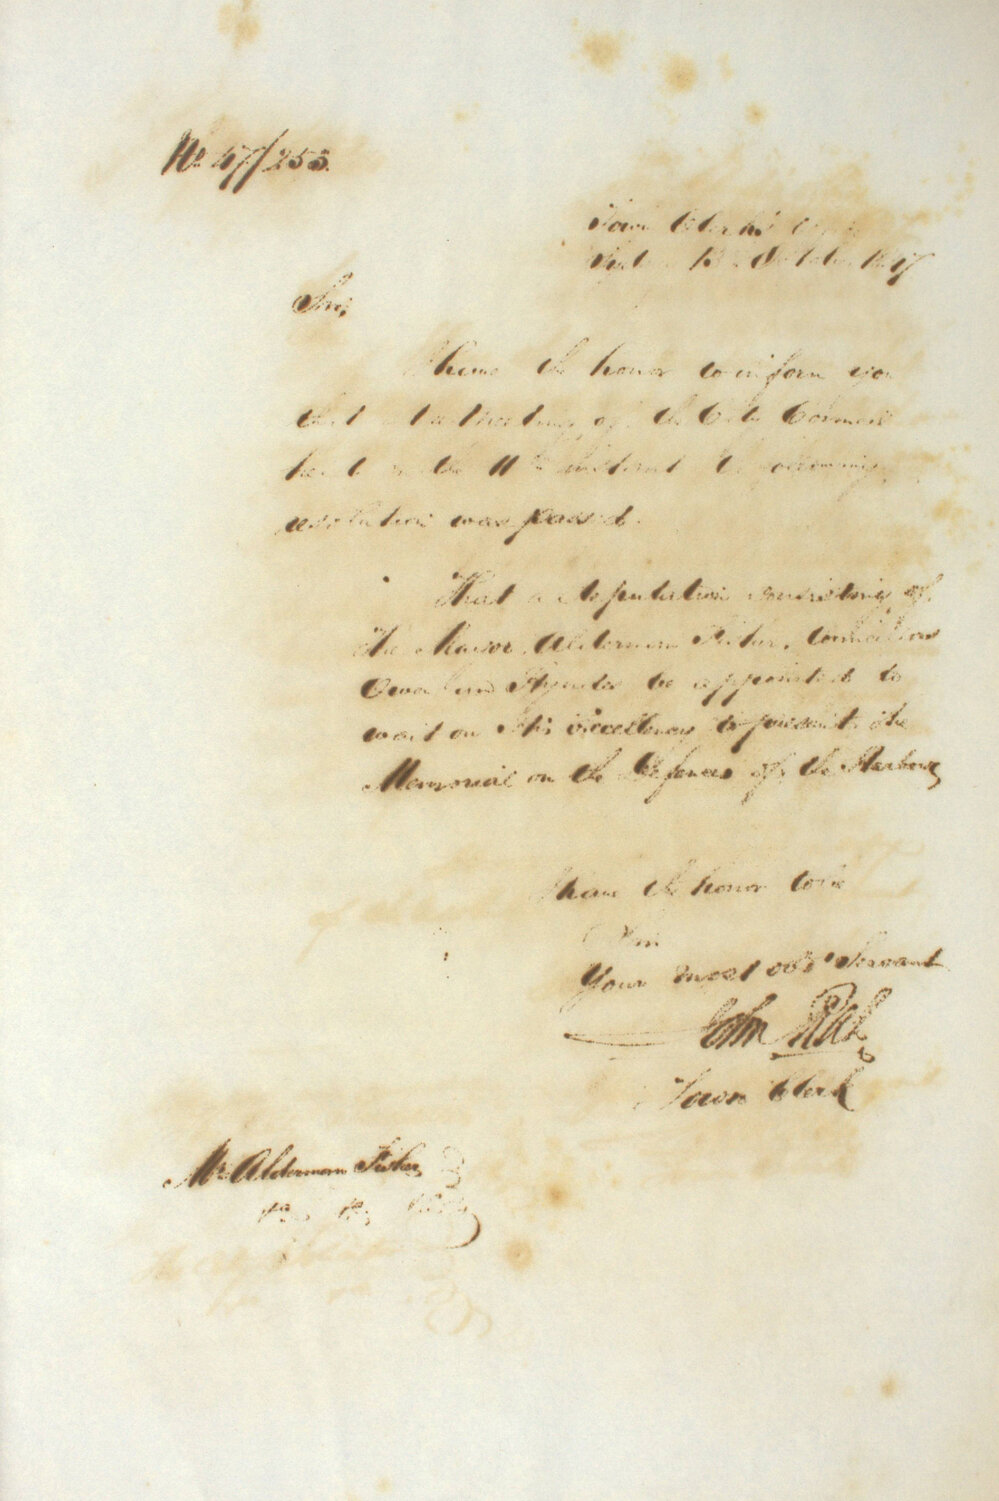 No 47/253.
Town Clerk's Office
Sydney 13 October 1847
Sir,
I have the honor to inform you
that at a Meeting of the City Council
held on the 11th instant the following
resolution was passed.
That a Deputation consisting of
The Mayor, Alderman Fisher, Councillors
and be appointed to
wait on His Excellency to present the
Memorial on the Defences of the Harbour,
I have the honor to be
Sir
Your most obdt Servant
John Rae
Town Clerk
Mr Alderman Fisher